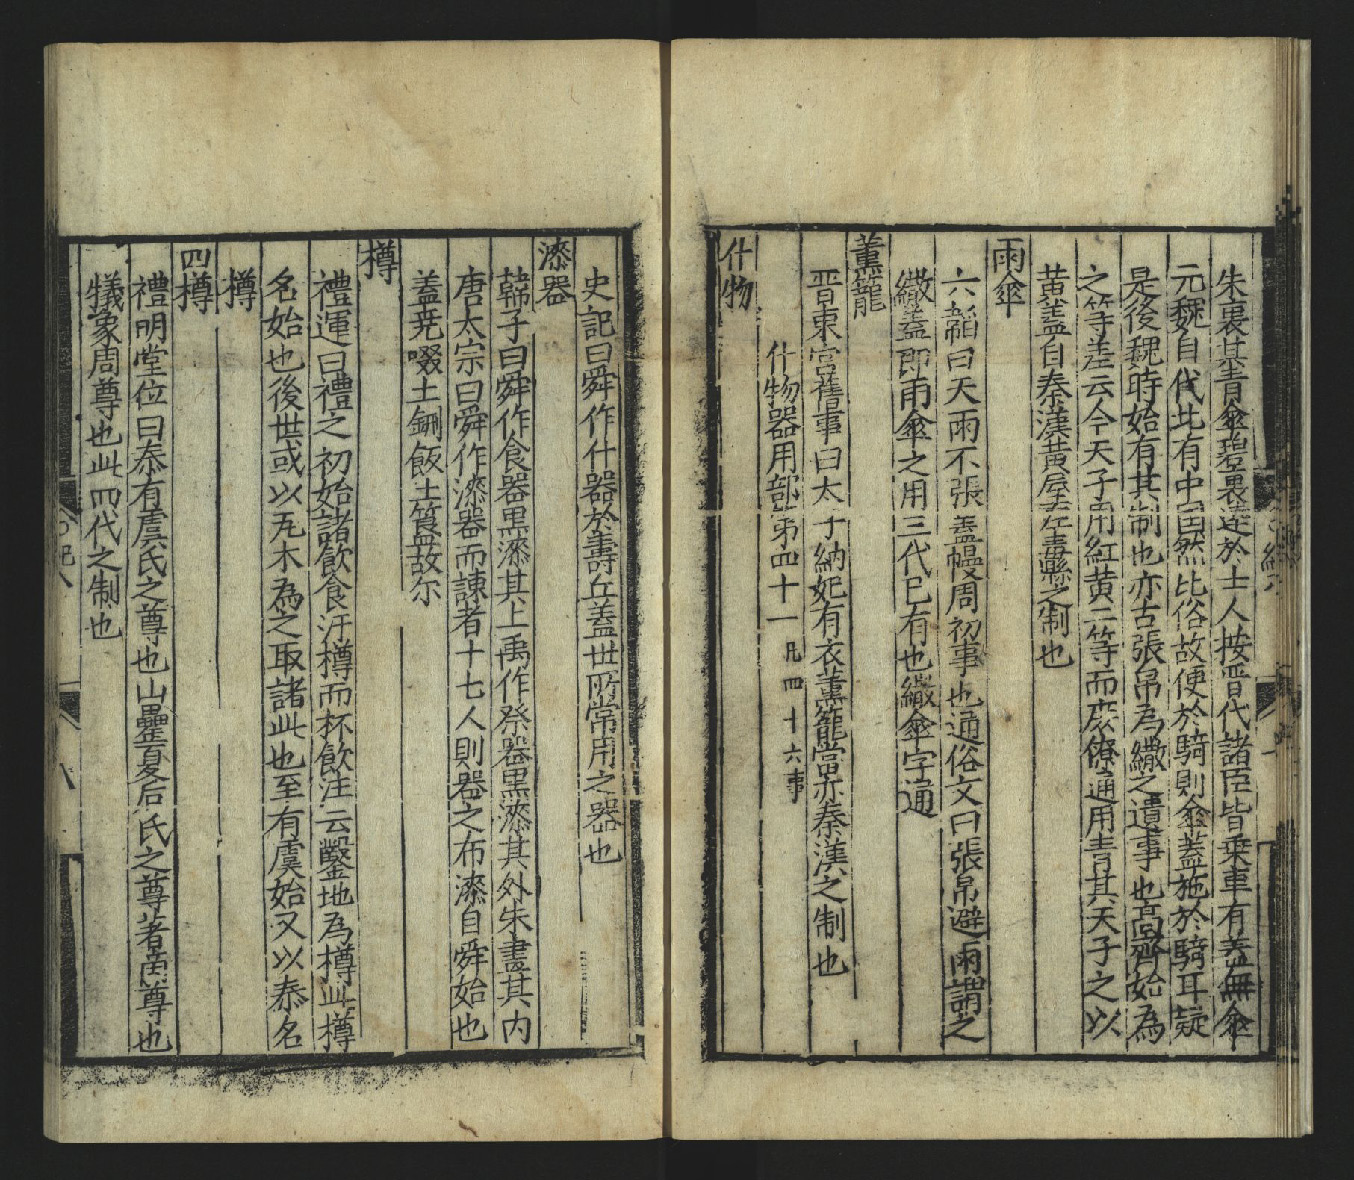 朱裏其青傘碧裏達於士人按晋代諸臣皆乗車有盖無傘
元魏自代北有中国然比俗故便於騎則傘蓋施於騎耳疑
是後魏時始有其制也亦古張帛為繖之遺事也高齊始為
之等差云今天子用紅黄二等而庶僚通用青其天子之以
黄蓋自秦漢黄屋左纛之制也
雨傘
六韜曰天雨不張盖幔周初事也通俗文曰張帛避雨謂之
繖蓋即雨傘之用三代已有也繖傘字通
薫籠
晋東宮舊事曰太子納妃有衣薫籠當亦秦漢之制也
什物器用部第四十一 凡四十六事
什物
史記曰舜作什器於壽丘盖世所常用之器也
漆器
韓子曰舜作食器黒漆其上禹作祭器黒漆其外朱畫其内
唐太宗曰舜作漆器而諫者十七人則器之布漆自舜始也
蓋尭啜土鉶飯土簋故尓
樽
禮運曰禮之初始諸飲食汙樽而杯飲注云鑿地為樽此樽
名始也後世或以瓦木為之取諸此也至有虞始又以泰名
樽
四樽
禮明堂位曰泰有虞氏之尊也山罍夏后氏之尊著啇尊也
犠象周尊也此四代之制也